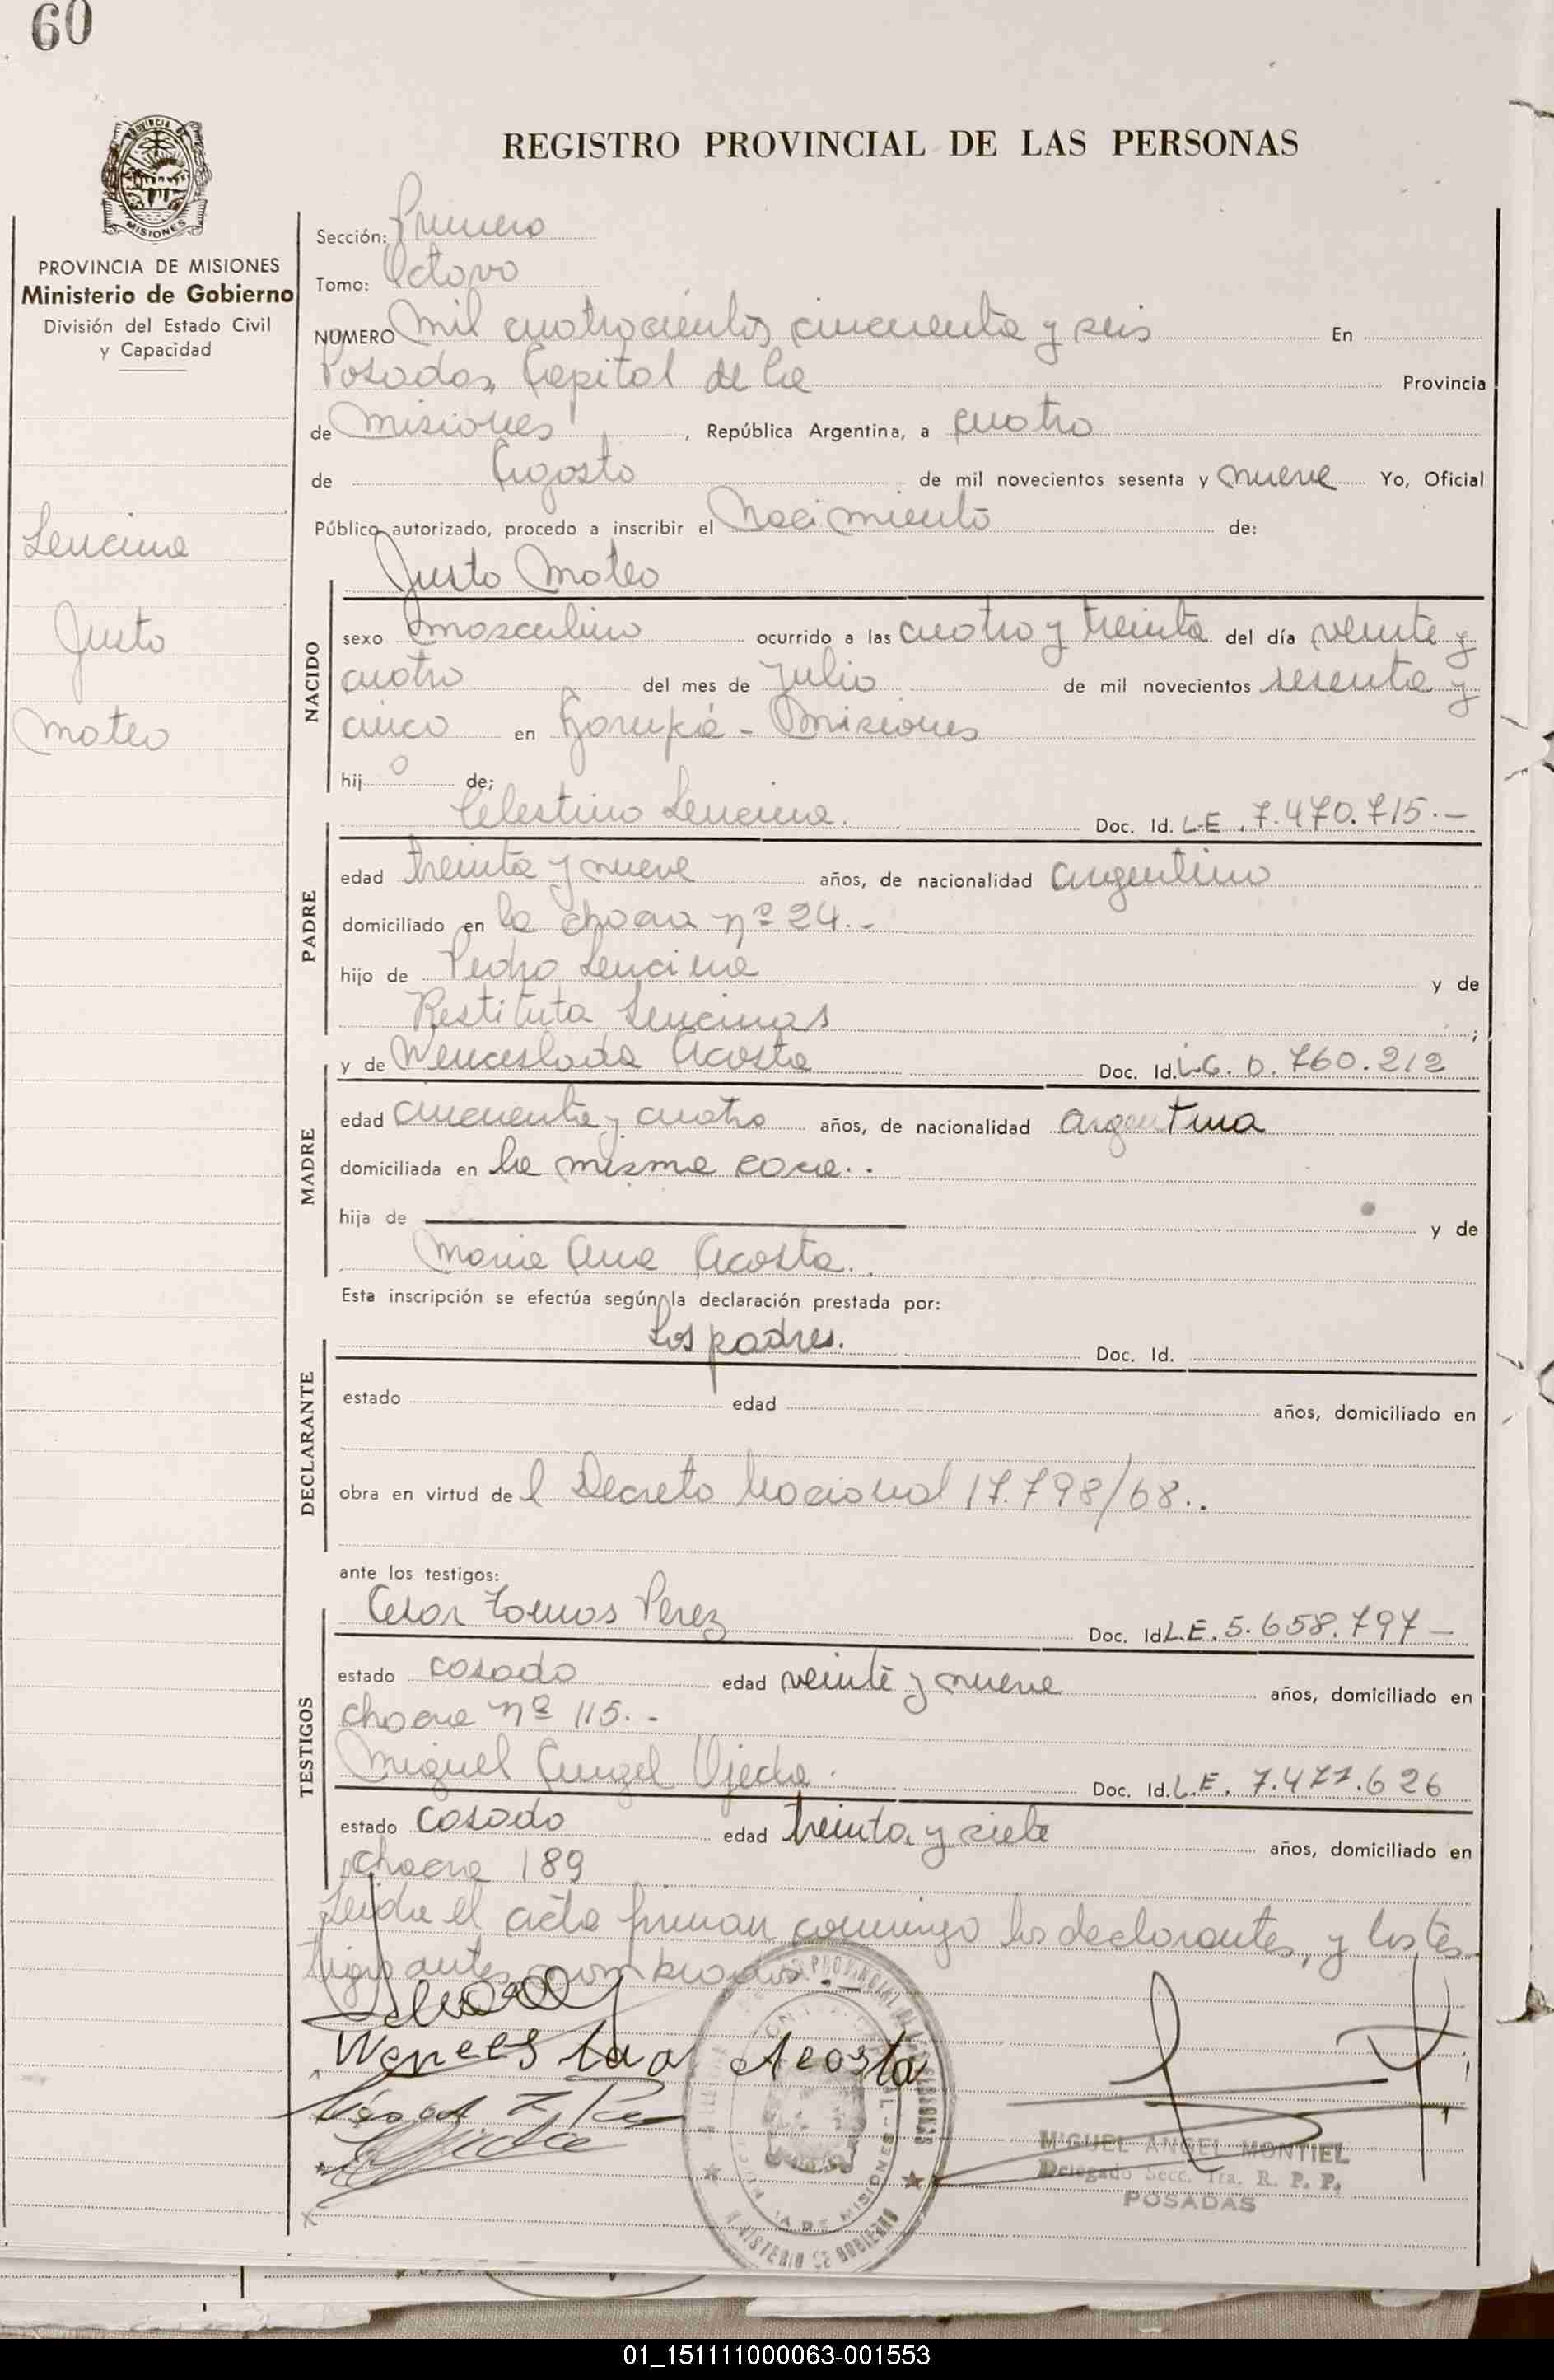 60
REGISTRO PROVINCIAL DE LAS PERSONAS
PROVINCIA DE MISIONES
Ministerio de Gobierno
División del Estado Civil
y Capacidad
Lencina
Justo
Mateo
Sección: Primera
Tomo: Octavo
NUMERO Mil cuatrocientos cincuenta y seis En
Posadas, Capital de la Provincia
de Misiones, República Argentina, a cuatro
de Agosto de mil novecientos sesenta y nueve Yo, Oficial
Público autorizado, procedo a inscribir el Nacimiento de:
Justo Mateo
NACIDO
sexo masculino ocurrido a las cuatro y treinta del día veinte y
cuatro del mes de Julio de mil novecientos sesenta y
cinco en Garupá - Misiones
hijo de;
Celestino Lencina. Doc. Id. L-E. 7.470.715.-
PADRE
edad treinta y nueve años, de nacionalidad argentino
domiciliado en la chacra nº 24.-
hijo de Pedro Lencina y de
Restituta Lencinas ;
y de Wenceslada Acosta Doc. Id. L.C. 0.760.212
MADRE
edad cincuenta y cuatro años, de nacionalidad argentina
domiciliada en la misma casa..
hija de y de
Maria Ana Acosta..
Esta inscripción se efectúa según la declaración prestada por:
Los padres. Doc. Id.
DECLARANTE
estado edad años, domiciliado en
obra en virtud del Decreto Nacional 17.798/68..
ante los testigos:
Cesar Tomas Perez Doc. Id L.E. 5.658.797-
TESTIGOS
estado casado edad veinte y nueve años, domiciliado en
chacra nº 115.-
Miguel Angel Ojeda. Doc. Id. L.E. 7.477.626
estado casado edad treinta y siete años, domiciliado en
chacra 189
Leida el acta firman conmigo los declarantes, y los tes-
tigos antes nombrados.-
Wenceslada Acosta
MIGUEL ANGEL MONTIEL
Delegado Secc. 1ra. R. P. P.
POSADAS
MINISTERIO DE GOBIERNO
01_151111000063-001553